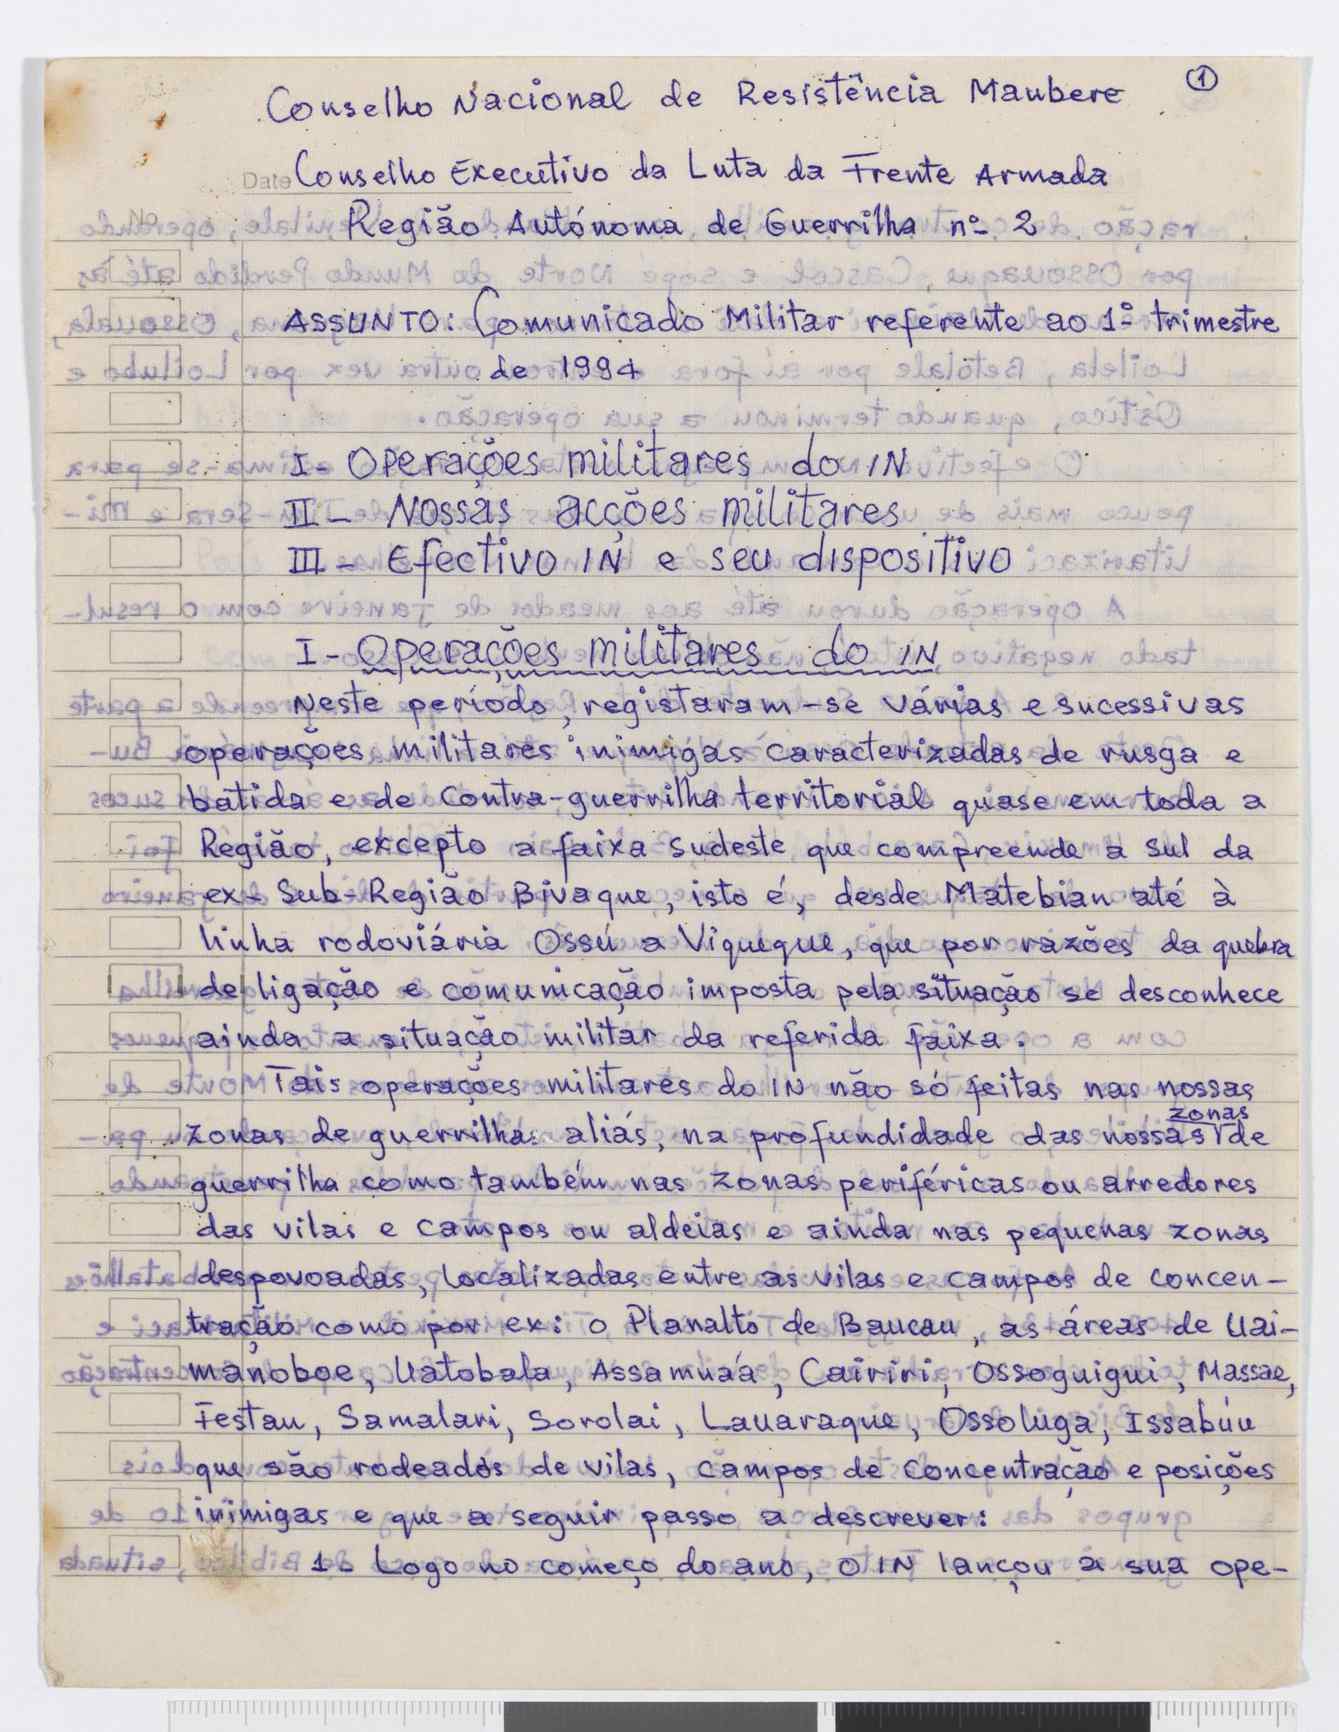 1
Conselho Nacional de Resistência Maubere
Date Conselho Executivo da Luta da Frente Armada
Região Autónoma de Guerrilha nº 2
ASSUNTO: Comunicado Militar referente ao 1º trimestre
de 1994
I - Operações militares do IN
II - Nossas acções militares
III - Efectivo IN e seu dispositivo
I - Operações militares do IN
Neste período, registaram-se várias e sucessivas
operações militares inimigas caracterizadas de rusga e
batida e de contra-guerrilha territorial quase em toda a
Região, excepto a faixa sudeste que compreende a sul da
ex-Sub-Região Bivaque, isto é, desde Matebian até à
linha rodoviária Ossú a Viqueque, que por razões da quebra
de ligação e comunicação imposta pela situação se desconhece
ainda a situação militar da referida faixa.
Tais operações militares do IN não só feitas nas nossas
zonas de guerrilha aliás, na profundidade das nossas zonas de
guerrilha como também nas zonas periféricas ou arredores
das vilas e campos ou aldeias e ainda nas pequenas zonas
despovoadas, localizadas entre as vilas e campos de concen-
tração como por ex: o Planalto de Baucau, as áreas de Uai-
manoboe, Uatobala, Assamuaá, Cairiri, Ossoguigui, Massae,
Festau, Samalari, Sorolai, Lauaraque, Ossoluga, Issabúu
que são rodeados de vilas, campos de concentração e posições
inimigas e que a seguir passo a descrever:
1- Logo no começo do ano, o IN lançou a sua ope-